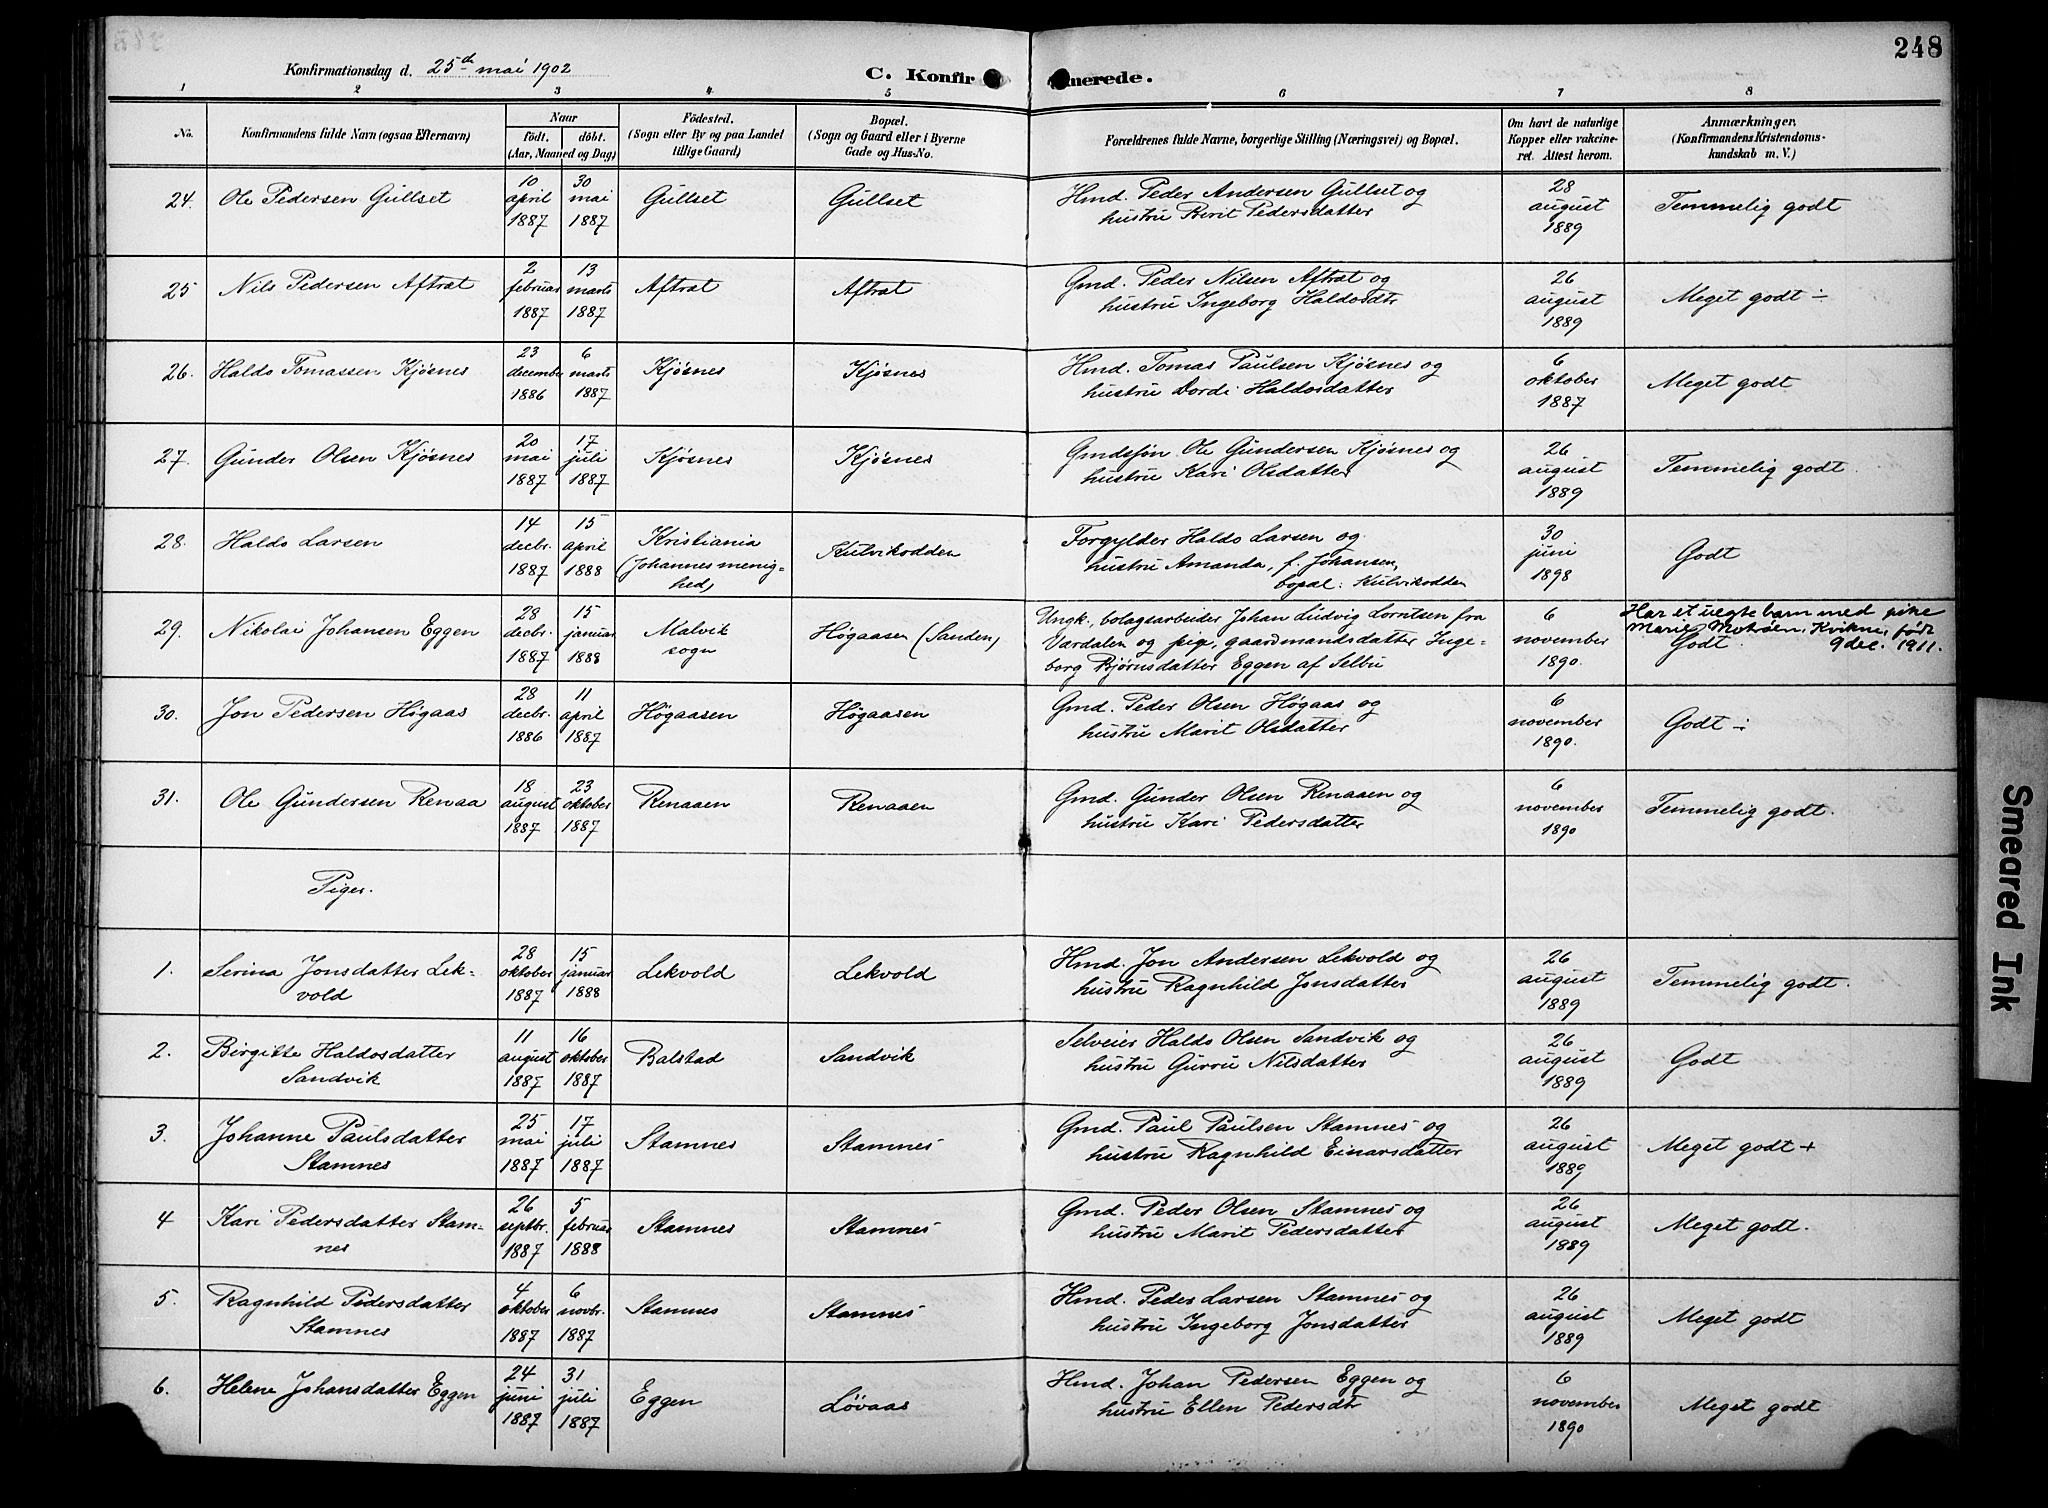 248
Konfirmationsdag d. 25de mai 1902
C. Konfirmerede.
1 2 3 4 5 6 7 8
No.
Konfirmandens fulde Navn (ogsaa Efternavn)
Naar
født. døbt.
(Aar, Maaned og Dag)
Fødested.
(Sogn eller By og paa Landet
tillige Gaard)
Bopæl.
(Sogn og Gaard eller i Byerne
Gade og Hus-No.
Forældrenes fulde Navne, borgerlige Stilling (Næringsvei) og Bopæl.
Om havt de naturlige
Kopper eller vakcine-
ret. Attest herom.
Anmærkninger.
(Konfirmandens Kristendoms-
kundskab m. V.)
24. Ole Pedersen Gullset
10 april 1887
30 mai 1887
Gullset
Gullset
Hmd. Peder Andersen Gullset og
hustru Berit Pedersdatter
28 august 1889
Temmelig godt
25 Nils Pedersen Aftret
2 februar 1887
13 marts 1887
Aftret
Aftret
Gmd. Peder Nilsen Aftret og
hustru Ingeborg Haldosdtr
26 august 1889
Meget godt ÷
26. Haldo Tomassen Kjøsnes
23 december 1886
6 marts 1887
Kjøsnes
Kjøsnes
Hmd. Tomas Paulsen Kjøsnes og
hustru Dordi Haldosdatter
6 oktober 1887
Meget godt
27. Gunder Olsen Kjøsnes
20 mai 1887
17 juli 1887
Kjøsnes
Kjøsnes
Gmdssøn Ole Gundersen Kjøsnes og
hustru Kari Olsdatter
26 august 1889
Temmelig godt.
28. Haldo Larsen
14 decbr. 1887
15 april 1888
Kristiania
(Johannes menig-
hed)
Kulvikodden
Forgylder Haldo Larsen og
hustru Amanda, f. Johansen,
bopæl: Kulvikodden
30 juni 1898
Godt
29. Nikolai Johansen Eggen
28 decbr. 1887
15 januar 1888
Malvik
sogn
Høgaasen (Sanden)
Ungk., bolagsarbeider Johan Ludvig Lorntsen fra
Værdalen og pige, gaardmandsdatter Inge-
borg Bjørnsdatter Eggen af Selbu
6 november 1890.
Har et uegte barn med pike
Marie Motrøen, Kvikne, født
Godt. 9 dec. 1911.
30. Jon Pedersen Høgaas
28 decbr. 1886
11 april 1887
Høgaasen
Høgaasen
Gmd. Peder Olsen Høgaas og
hustru Marit Olsdatter
6 november 1890.
Godt ÷
31. Ole Gundersen Renaa
18 august 1887
23 oktober 1887
Renaaen
Renaaen
Gmd. Gunder Olsen Renaaen og
hustru Kari Pedersdatter
6 november 1890
Temmelig godt.
Piger.
1. Serina Jonsdatter Lek-
vold
28 oktober 1887
15 januar 1888
Lekvold
Lekvold
Hmd. Jon Andersen Lekvold og
hustru Ragnhild Jonsdatter
26 august 1889
Temmelig godt.
2. Birgitte Haldosdatter
Sandvik
11 august 1887
16 oktober 1887
Balstad
Sandvik
Selveier Haldo Olsen Sandvik og
hustru Gurru Nilsdatter
26 august 1889
Godt
3. Johanne Paulsdatter
Stamnes
25 mai 1887
17 juli 1887
Stamnes
Stamnes
Gmd. Paul Paulsen Stamnes og
hustru Ragnhild Einarsdatter
26 august 1889
Meget godt +
4 Kari Pedersdatter Stam-
nes
26 septbr. 1887
5 februar 1888
Stamnes
Stamnes
Gmd. Peder Olsen Stamnes og
hustru Marit Pedersdatter
26 august 1889
Meget godt.
5. Ragnhild Pedersdatter
Stamnes
4 oktober 1887
6 novbr. 1887
Stamnes
Stamnes
Hmd. Peder Larsen Stamnes og
hustru Ingeborg Jonsdatter
26 august 1889
Meget godt
6. Helene Johansdatter Eggen
24 juni 1887
31 juli 1887
Eggen
Løvaas
Hmd. Johan Pedersen Eggen og
hustru Ellen Pedersdtr
6 november 1890
Meget godt
Smeared Ink